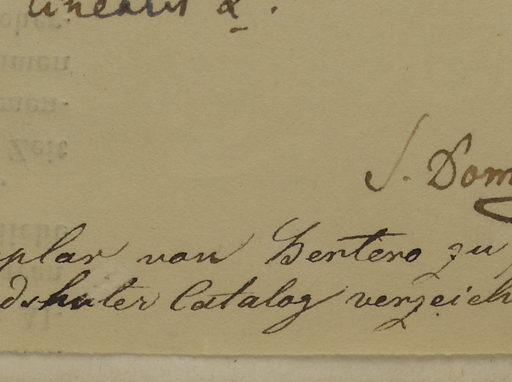 linearis α.
S. Dom
plar von Bertero zu
dshuter Catalog verzeich